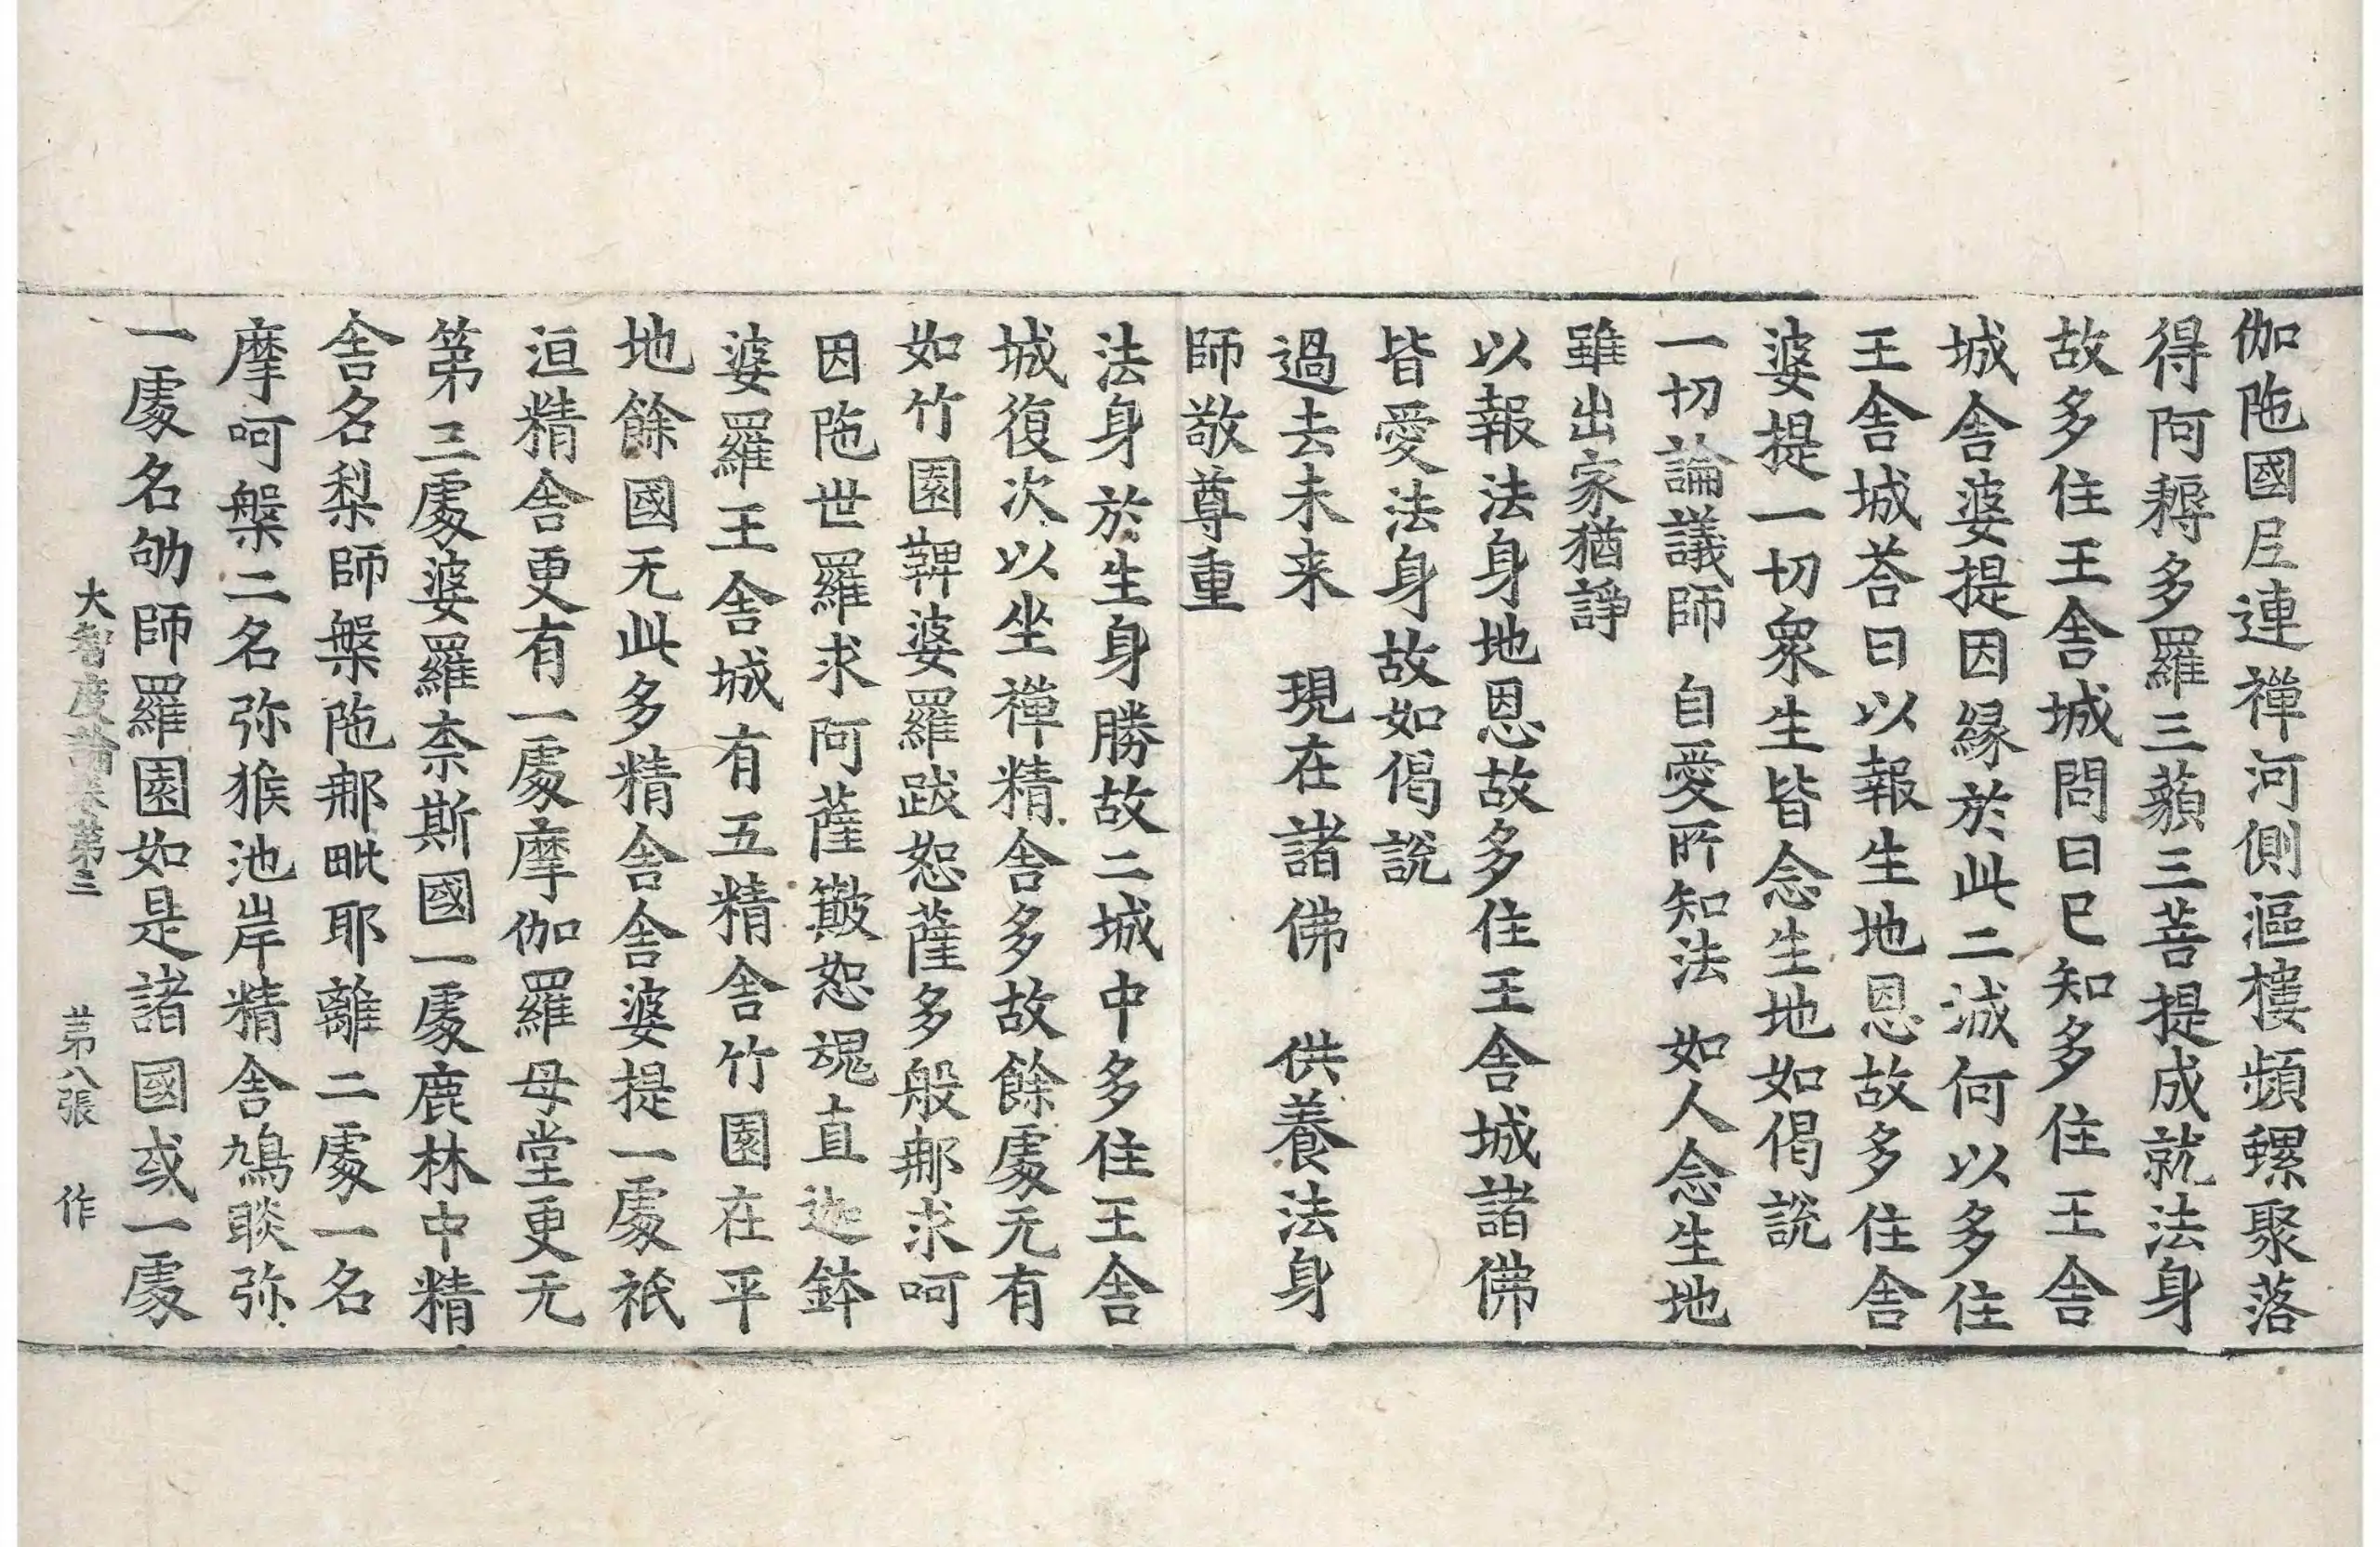 伽陁國𡰱連禪河側漚樓頻螺聚落
得阿耨多羅三藐三菩提成就法身
故多住王舎城問曰已知多住王舎
城舎婆提因緣於此二城何以多住
王舎城荅曰以報生地恩故多住舎
婆提一切衆生皆念生地如偈說
一切論議師 自愛所知法 如人念生地
雖出家猶諍
以報法身地恩故多住王舎城諸佛
皆愛法身故如偈說
過去未来 現在諸佛 供養法身
師敬尊重
法身於生身勝故二城中多住王舎
城復次以坐禪精舎多故餘處无有
如竹園鞞婆羅跋恕薩多般𨚗求呵
因陁世羅求阿薩簸恕魂直迦鉢
婆羅王舎城有五精舎竹園在平
地餘國无此多精舎舎婆提一處祇
洹精舎更有一處摩伽羅母堂更无
第三處婆羅柰斯國一處鹿林中精
舎名梨師槃陁𨚗毗耶離二處一名
摩呵槃二名弥猴池岸精舎鳩睒弥
一處名劬師羅園如是諸國或一處
大智度論卷第三 第八張 作